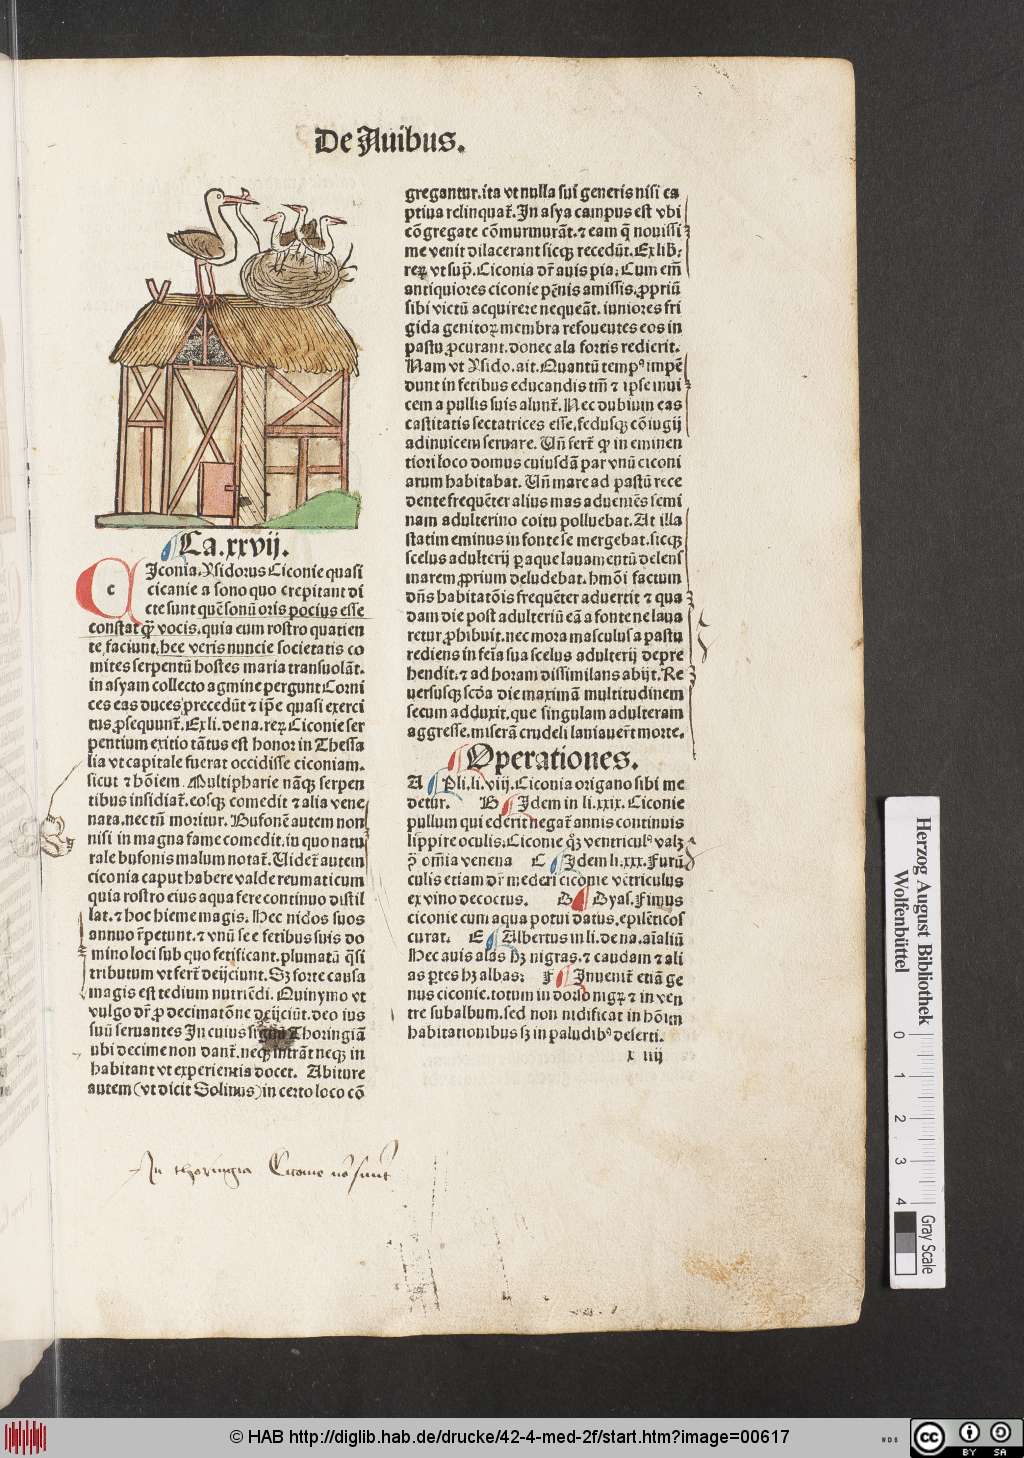 De Auibus.
Ca. xxvij.
c
Iconia. Ysidorus Ciconie quasi
cicanie a sono quo crepitant di
cte sunt quē sonū oris pocius esse
constat q̄ꝫ vocis. quia eum rostro quatien
te faciunt. hee veris nuncie societatis co
mites serpentū hostes maria transuolāt.
in asyam collecto agmine pergunt Corni
ces eas duces precedūt ⁊ ip̄e quasi exerci
tus ꝓsequunt̄. Ex li. de na. reꝝ Ciconie ser
pentium exitio tātus est honor in Thessa
lia vt capitale fuerat occidisse ciconiam.
sicut ⁊ hōiem. Multipharie nāqꝫ serpen
tibus insidiat̄. eosqꝫ comedit ⁊ alia vene
nata. nec tñ moritur. Bufonē autem non
nisi in magna fame comedit. in quo natu
rale bufonis malum notat̄. Uidet̄ autem
ciconia caput habere valde reumaticum
quia rostro eius aqua fere continuo distil
lat. ⁊ hoc hieme magis. Hec nidos suos
annuo r̄petunt. ⁊ vnū se e fetibus suis do
mino loci sub quo fetificant. plumatū q̄si
tributum vt fert̄ deijciunt. Sꝫ forte causa
magis est tedium nutriēdi. Quinymo vt
vulgo dr̄ ꝓ decimatōne deijciūt. deo ius
suū seruantes In cuius signū Thoringiā
ubi decime non dant̄. neqꝫ intrāt neqꝫ in
habitant vt experientia docet. Abiture
autem (vt dicit Solinus) in certo loco cō
gregantur. ita vt nulla sui generis nisi ca
ptiua relinquat̄. In asya campus est vbi
cōgregate cōmurmurāt. ⁊ eam q̄ nouissi
me venit dilacerant sicqꝫ recedūt. Ex lib.
reꝝ vt sup̄. Ciconia dr̄ auis pia. Cum em̄
antiquiores ciconie pēnis amissis. ꝓpriū
sibi victū acquirere nequeāt. iuniores fri
gida genitoꝝ membra refouentes eos in
pastu ꝓcurant. donec ala fortis redierit.
Nam vt Ysido. ait. Quantū tempꝰ impē
dunt in fetibus educandis tm̄ ⁊ ipse inui
cem a pullis suis alunt̄. Nec dubium eas
castitatis sectatrices esse. fedusqꝫ cōiugij
adinuicem seruare. Uñ fert̄ ꝙ in eminen
tiori loco domus cuiusdā par vnū ciconi
arum habitabat. Uñ mare ad pastū rece
dente frequēter alius mas adueniēs semi
nam adulterino coitu polluebat. At illa
statim eminus in fonte se mergebat. sicqꝫ
scelus adulterij per aque lauamentū delens
marem ꝓprium deludebat. hmōi factum
dñs habitatōis frequēter aduertit ⁊ qua
dam die post adulteriū eā a fonte ne laua
retur ꝓhibuit. nec mora masculus a pastu
rediens in fem̄a sua scelus adulterij depre
hendit. ⁊ ad horam dissimilans abijt. Re
uersusqꝫ scd̄a die maximā multitudinem
secum adduxit. que singulam adulteram
aggresse. miserā crudeli laniauert̄ morte.
Operationes.
A Pli. li. viij. Ciconia origano sibi me
detur. B Idem in li. xxix. Ciconie
pullum qui ederit negat̄ annis continuis
lippire oculis. Ciconie qꝫ ventriculꝰ valꝫ
ꝯ om̄ia venena C Idem li. xxx. Furū
culis etiam dr̄ mederi ciconie vētriculus
ex vino decoctus. D Gyas. Fimus
ciconie cum aqua potui datus. epilēticos
curat. E Albertus in li. de na. aīaliū
Hec auis alas hꝫ nigras. ⁊ caudam ⁊ ali
as ꝑtes hꝫ albas. F Inuenit̄ etiā ge
nus ciconie. totum in dorso nigꝝ ⁊ in ven
tre subalbum. sed non nidificat in hōim
habitationibus sꝫ in paludibꝰ deserti.
x iiij
In thoringia Ciconie nō sunt
Herzog August Bibliothek
Wolfenbüttel
0 1 2 3 4
Gray Scale
© HAB http://diglib.hab.de/drucke/42-4-med-2f/start.htm?image=00617
WDB
cc BY SA